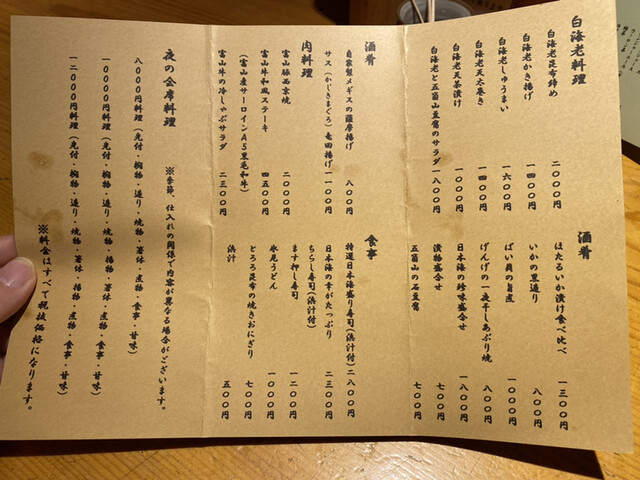 白海老料理
白海老昆布締め 二〇〇〇円
白海老かき揚げ 一四〇〇円
白海老しゅうまい 一六〇〇円
白海老天太巻き 一四〇〇円
白海老天茶漬け 一〇〇〇円
白海老と五箇山豆腐のサラダ 一八〇〇円
酒肴
ほたるいか漬け食べ比べ 一三〇〇円
いかの黒造り 八〇〇円
ばい貝の旨煮 一〇〇〇円
げんげの一夜干しあぶり焼 八〇〇円
日本海の珍味盛合せ 一八〇〇円
漬物盛合せ 七〇〇円
五箇山の石豆腐 七〇〇円
酒肴
自家製メギスの薩摩揚げ 八〇〇円
サス(かじきまぐろ)竜田揚げ 一一〇〇円
肉料理
富山豚西京焼 二〇〇〇円
富山牛和風ステーキ 四五〇〇円
(富山産サーロインA5黒毛和牛)
富山牛の冷しゃぶサラダ 二三〇〇円
食事
特選日本海盛り寿司(浜汁付) 二八〇〇円
日本海の幸がたっぷり
ちらし寿司(浜汁付) 二三〇〇円
ます押し寿司 一二〇〇円
氷見うどん 一〇〇〇円
とろろ昆布の焼きおにぎり 七〇〇円
浜汁 五〇〇円
夜の会席料理
※季節、仕入れの関係で内容が異なる場合がございます。
八〇〇〇円料理(先付・椀物・造り・焼物・箸休・煮物・食事・甘味)
一〇〇〇〇円料理(先付・椀物・造り・焼物・揚物・箸休・煮物・食事・甘味)
一二〇〇〇円料理(先付・椀物・造り・焼物・箸休・揚物・煮物・食事・甘味)
※料金はすべて税抜価格になります。